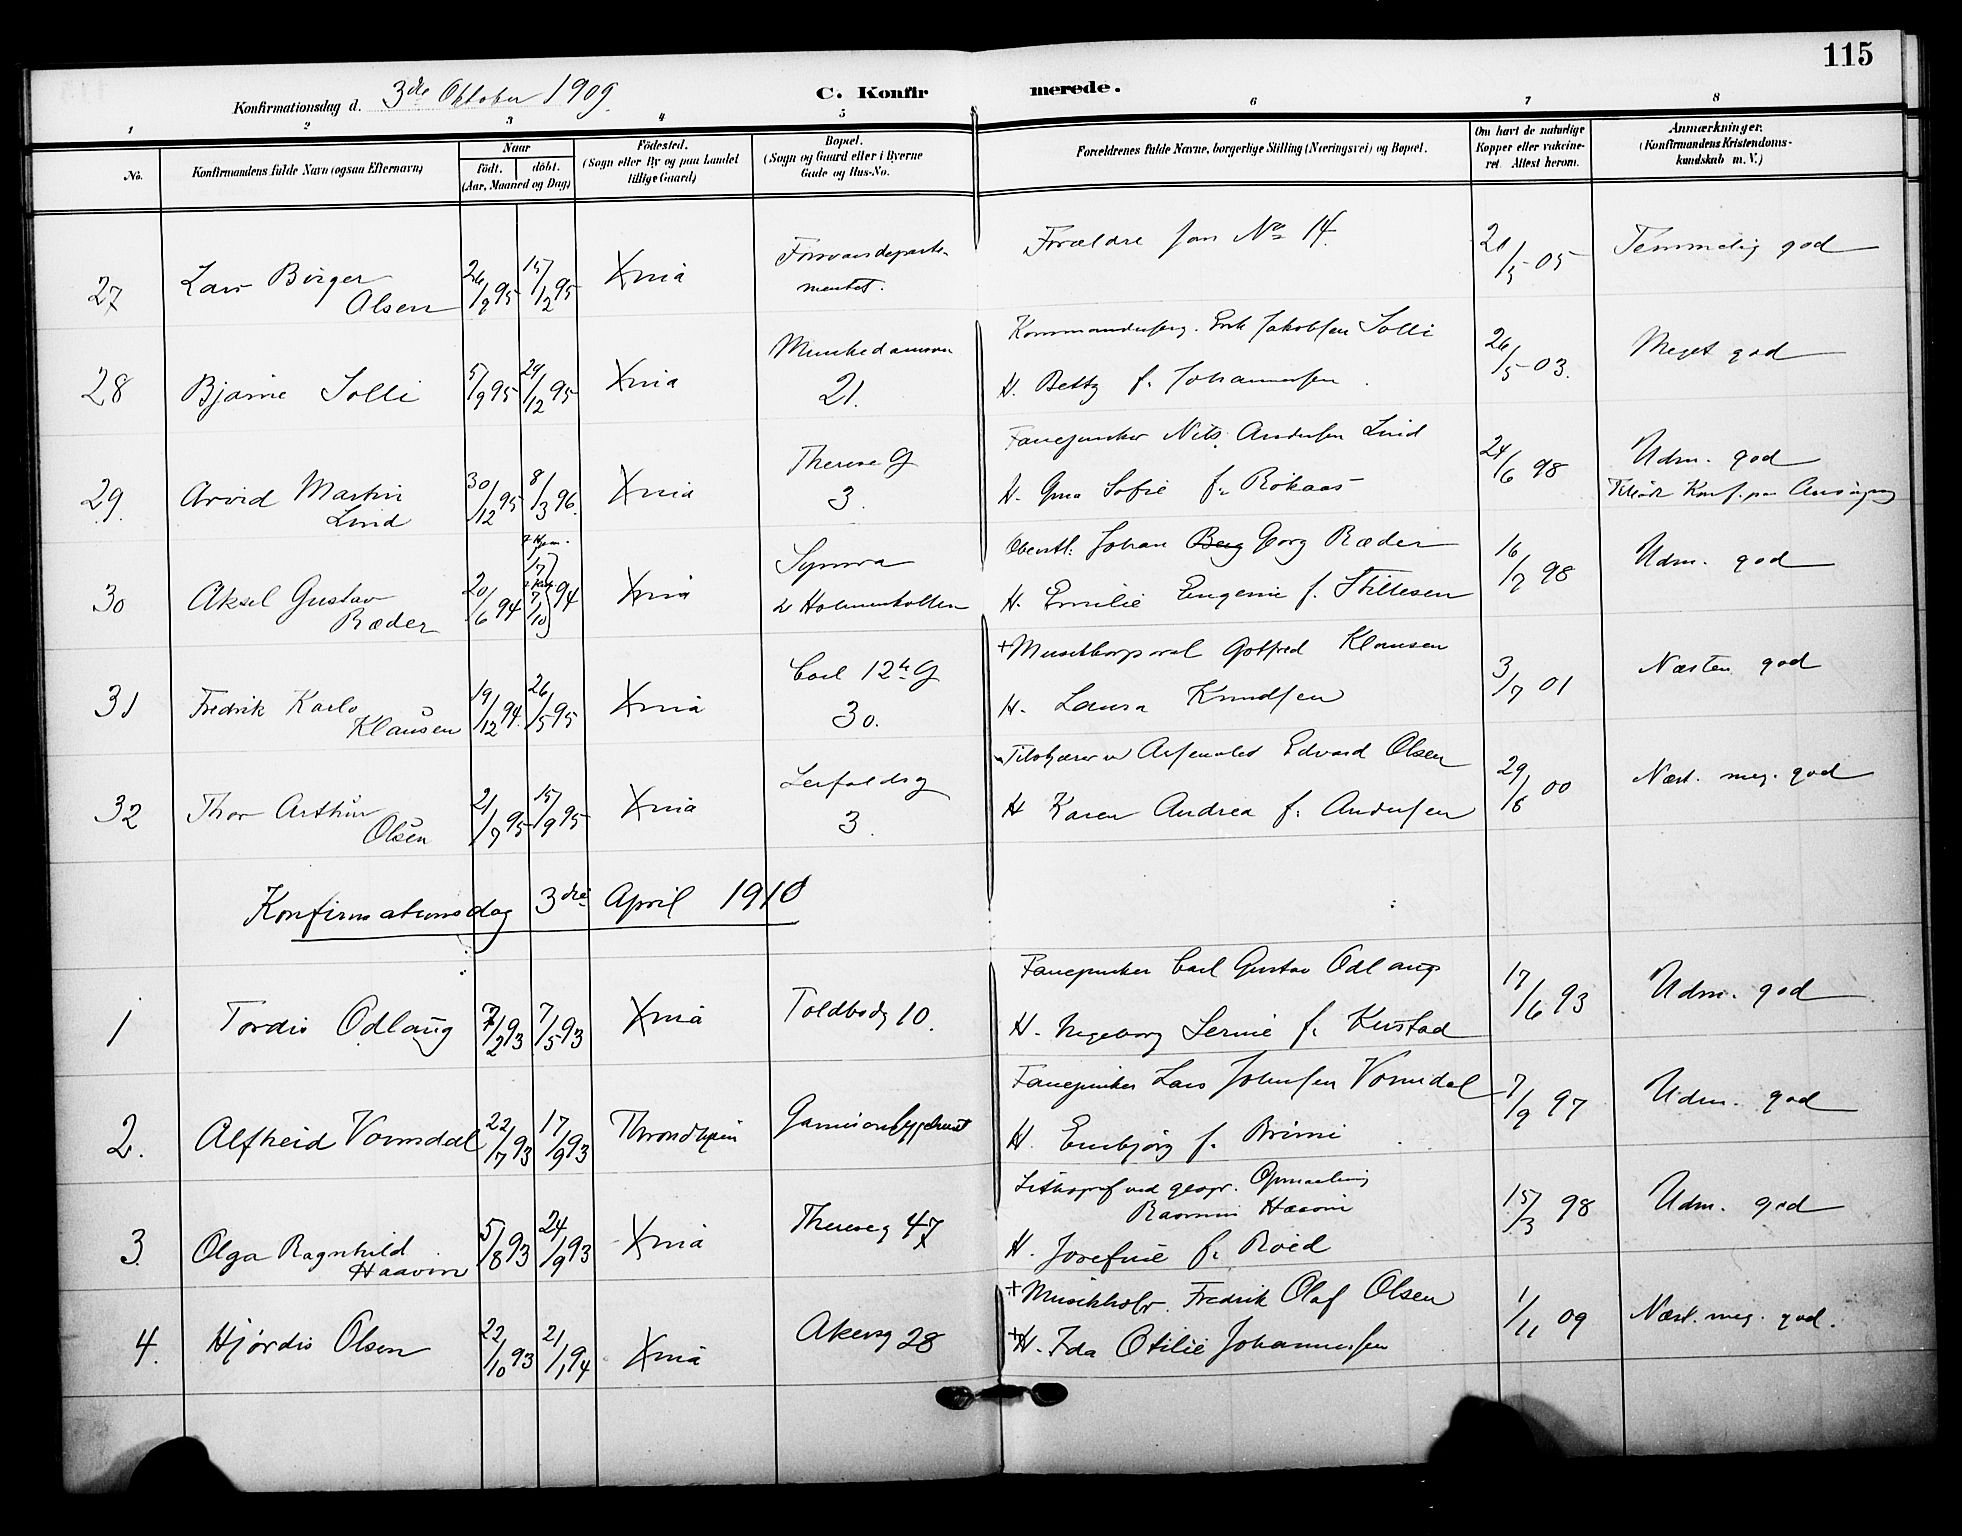 115
Konfirmationsdag d. 3die Oktober 1909
C. Konfirmerede.
1 2 3 4 5 6 7 8
No.
Konfirmandens fulde Navn (ogsaa Efternavn)
Naar
födt. döbt.
(Aar, Maaned og Dag)
Födested.
(Sogn eller By og paa Landet
tillige Gaard)
Bopæl.
(Sogn og Gaard eller i Byerne
Gade og Hus-No.
Forældrenes fulde Navne, borgerlige Stilling (Næringsvei) og Bopæl.
Om havt de naturlige
Kopper eller vakcineret
Attest herom.
Anmærkninger.
(Konfirmandens Kristendomskundskab
m. V.)
27 Lars Birger Olsen 26/9 95 15/12 95 Xnia Forsvarsdepartementet. Forældre som No 14. 5-05 Temmelig god
28 Bjarne Solli 5/9 95 29/12 95 Xnia Munkedamsvn 21. Erik Jakobsen Solli
H. Betty f. Johannesen 26/5-03. Meget god
29. Arvid Martin Lind 30/12 95 8/3 96. Xnia Therese G 3. Fanejunker Nils Andersen Lind
H. Sofie f. 24/6 98 Udm. god
30 Aksel Gustav Ræder 20/6 94 94 Xnia Holmenkollen Oberstl. Johan Georg Ræder
H. Emilie Eugenie f. Stillesen 16/7 98 Udm. god
31 Fredrik Karlo Klausen 19/12 94. 26/5 95 Xnia Carl 12te G 30. + Musikkorporal Gotfred Klausen
H. Laura Knudsen 3/7 01 Næsten god
32 Thor Arthur Olsen 2/7 95 15/9 95 Xnia 3. Arsenalet Edvard Olsen
H Karen Andrea f. Andersen 29/6 00 Næst. meg. god
Konfirmationsdag 3die April 1910
1 Tordis Odlaug 93 7/5 93 Xnia Toldbodg 10. Fanejunker Carl Gustav Odlaug
H. Ingeborg f. 17/6 93 Udm. god
2. Alfheid Vormdal 22/7 93 17/9 93 Throndhjem Fanejunker Lars Johnsen Vormdal
H. Embjørg f. Brimi 7/9 97 Udm. god
3. Olga Ragnhild Haavin 5/8 93 24/9 93 Xnia Thereseg 47 Lithograf ved geogr. Opmaaling
H. Josefine f. Roed 15/3 98 Udm. god
4. Hjørdis Olsen 22/10 93 21/1 94 Xnia Akersg 28 Fredrik Olaf Olsen
+ H. Ida Otilie Johannessen 1/11 09 Næst. meg. god.